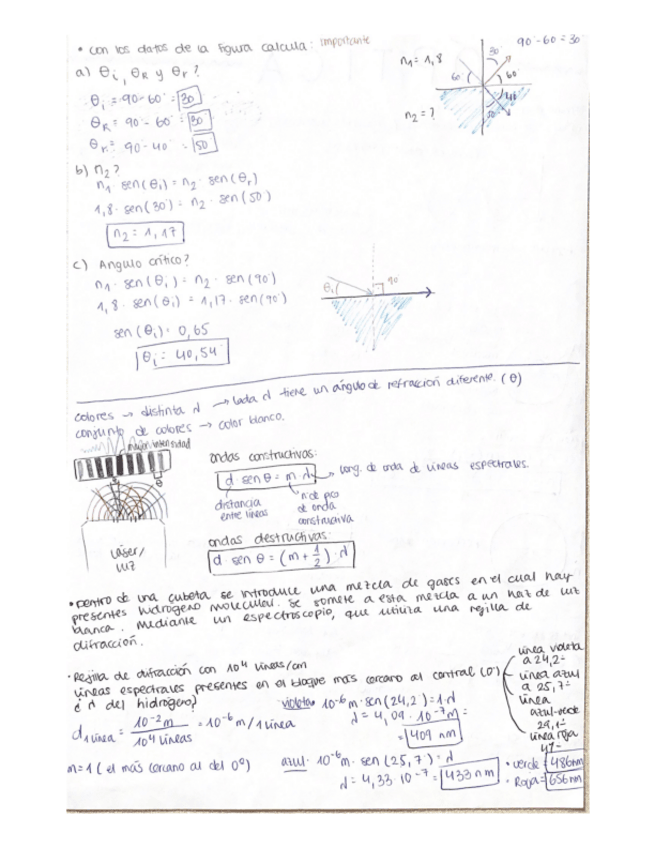 • con los datos de la figura calcula: importante
a) θi, θR y θr?
θi = 90-60 = 30
θR = 90 - 60 = 30
θr = 90 - 40 = 50
n1 = 1,8
n2 = ?
90-60=30
30
60
60
40
50
b) n2?
n1 · sen(θi) = n2 · sen(θr)
1,8 · sen(30) = n2 · sen(50)
n2 = 1,17
c) Angulo crítico?
n1 · sen(θi) = n2 · sen(90)
1,8 · sen(θi) = 1,17 · sen(90)
sen(θi) = 0,65
θi = 40,54
θi
90
colores → distinta λ → cada λ tiene un ángulo de refracción diferente. (θ)
conjunto de colores → color blanco.
mayor intensidad
láser/
luz
ondas constructivas:
d sen θ = m · λ → long. de onda de líneas espectrales.
distancia entre líneas
nº de pico de onda constructiva
ondas destructivas:
d · sen θ = (m + 1/2) · λ
• Dentro de una cubeta se introduce una mezcla de gases en el cual hay
presentes hidrógeno molecular. Se somete a esta mezcla a un haz de luz
blanca. Mediante un espectroscopio, que utiliza una rejilla de
difracción.
• Rejilla de difracción con 10⁴ líneas/cm
líneas espectrales presentes en el bloque más cercano al central (0°)
línea violeta
a 24,2°
línea azul
a 25,7°
línea
azul-verde
29,1°
línea roja
41°
¿λ del hidrógeno?
d 1 línea = 10⁻²m / 10⁴ líneas = 10⁻⁶ m/1 línea
violeta 10⁻⁶ m · sen(24,2°) = 1 · λ
λ = 4,09 · 10⁻⁷ m =
= 409 nm
m=1 (el más cercano al del 0°)
azul · 10⁻⁶ m · sen (25,7°) = λ
λ = 4,33 · 10⁻⁷ = 433 nm
• verde = 486nm
• Roja = 656nm